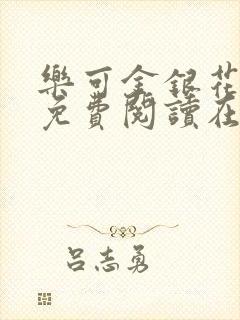 樂可金銀花
免費閱讀在
呂志勇